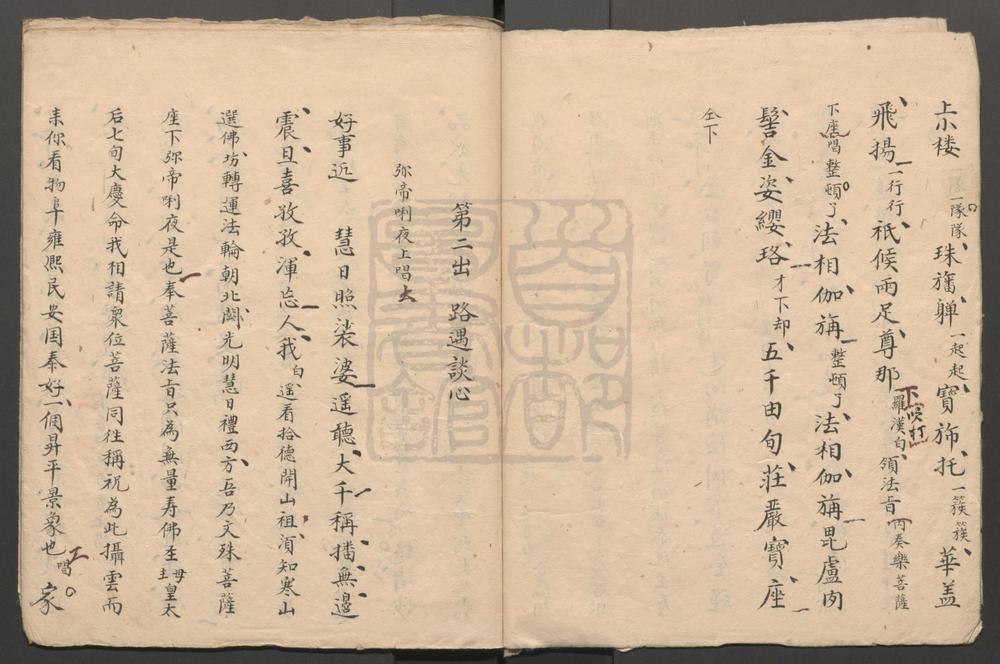 上小楼 一隊隊 珠旛軃 一起起 寶斾托 一簇簇 華盖
飛揚 一行行 祇候兩足尊那 下吹打 羅漢白 領法旨 丙奏樂菩薩
下座唱 整頓了 法相伽旃 整頓了 法相伽旃毘盧肉
髻金姿纓珞 才下却 五千由旬莊嚴寶座
仝下
第二出 路遇談心
弥帝唎夜上唱
好事近 慧日照裟婆遥聽大千稱播無邊
震旦喜孜孜渾忘人我 白 遥看拾德開山祖須知寒山
選佛坊轉運法輪朝北闕光明慧日禮西方吾乃文殊菩薩
座下弥帝唎夜是也奉菩薩法旨只為無量寿佛圣母皇太
后七旬大慶命我相請衆位菩薩同往稱祝為此攝雲而
来你看物阜雍熙民安国泰好一個昇平景象也 唱 家